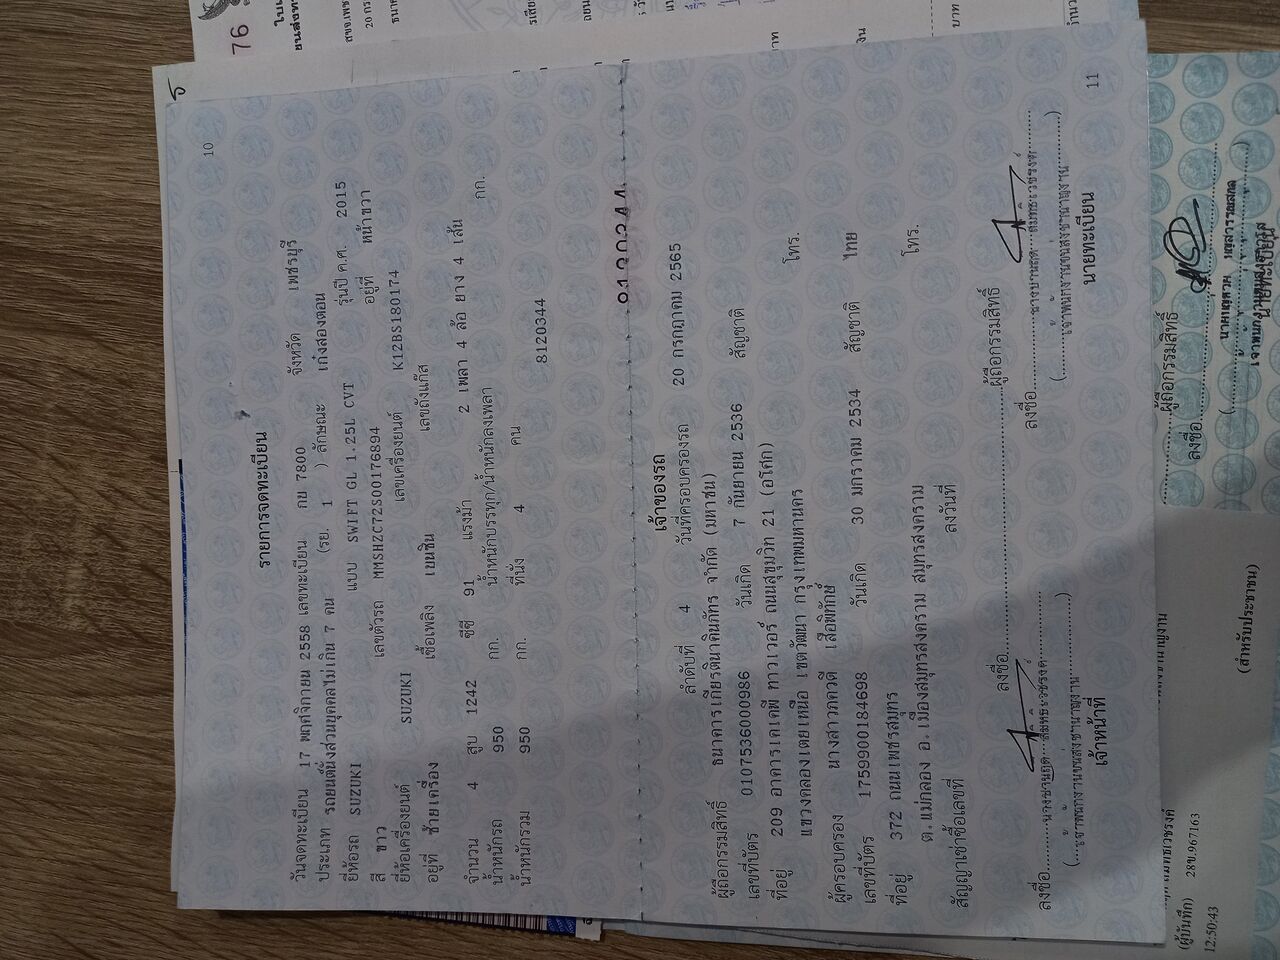 10
รายการจดทะเบียน
วันจดทะเบียน 17 พฤศจิกายน 2558 เลขทะเบียน กย 7800 จังหวัด เพชรบุรี
ประเภท รถยนต์นั่งส่วนบุคคลไม่เกิน 7 คน (รย. 1 ) ลักษณะ เก๋งสองตอน
ยี่ห้อรถ SUZUKI แบบ SWIFT GL 1.25L CVT รุ่นปี ค.ศ. 2015
สี ขาว เลขตัวรถ MMSHZC72S00176894 อยู่ที่ หน้าขวา
ยี่ห้อเครื่องยนต์ SUZUKI เลขเครื่องยนต์ K12BS180174
อยู่ที่ ซ้ายเครื่อง เชื้อเพลิง เบนซิน เลขถังแก๊ส
จำนวน 4 สูบ 1242 ซีซี 91 แรงม้า 2 เพลา 4 ล้อ ยาง 4 เส้น
น้ำหนักรถ 950 กก. น้ำหนักบรรทุก/น้ำหนักลงเพลา กก.
น้ำหนักรวม 950 กก. ที่นั่ง 4 คน
8120344
เจ้าของรถ
ลำดับที่ 4 วันที่ครอบครองรถ 20 กรกฎาคม 2565
ผู้ถือกรรมสิทธิ์ ธนาคารเกียรตินาคินภัทร จำกัด (มหาชน)
เลขที่บัตร 0107536000986 วันเกิด 7 กันยายน 2536 สัญชาติ
ที่อยู่ 209 อาคารเคเคพี ทาวเวอร์ ถนนสุขุมวิท 21 (อโศก)
แขวงคลองเตยเหนือ เขตวัฒนา กรุงเทพมหานคร โทร.
ผู้ครอบครอง นางสาวภควดี เสือพิทักษ์
เลขที่บัตร 1759900184698 วันเกิด 30 มกราคม 2534 สัญชาติ ไทย
ที่อยู่ 372 ถนนเพชรสมุทร
ต.แม่กลอง อ.เมืองสมุทรสงคราม สมุทรสงคราม โทร.
สัญญาเช่าซื้อเลขที่ ลงวันที่
ลงชื่อ ผู้ถือกรรมสิทธิ์
ลงชื่อ ลงชื่อ
เจ้าหน้าที่ นายทะเบียน
11
76
20
บาท
ผู้ถือกรรมสิทธิ์
ลงชื่อ
นายทะเบียน
(สำหรับประชาชน)
(ผู้บันทึก) 28ข.967163
12:50:43